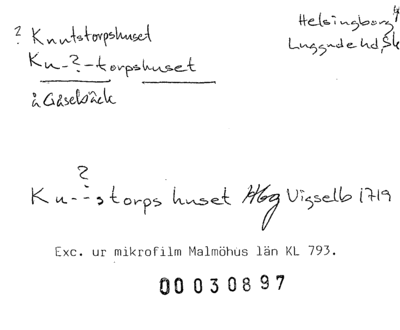 ? Knutstorpshuset
Ku-?-torpshuset
å Gåsebäck
Helsingborg
Luggude hd, Sk
?
Ku--storps huset Hbg Vigselb 1719
Exc. ur mikrofilm Malmöhus län KL 793.
00030897